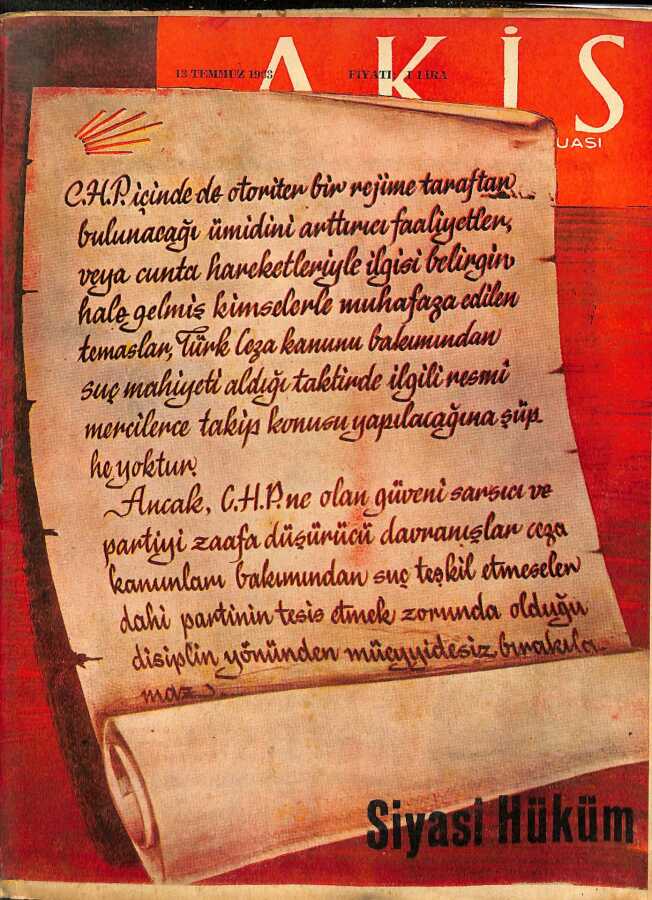 AKİS
13 TEMMUZ 1963
FİYATI 1 LİRA
UASI
C.H.P. içinde de otoriter bir rejime taraftar
bulunacağı ümidini arttırıcı faaliyetler,
veya cunta hareketleriyle ilgisi belirgin
hale gelmiş kimselerle muhafaza edilen
temaslar, Türk Ceza kanunu bakımından
suç mahiyeti aldığı taktirde ilgili resmî
mercilerce takip konusu yapılacağına şüp
he yoktur.
Ancak, C.H.P.ne olan güveni sarsıcı ve
partiyi zaafa düşürücü davranışlar ceza
kanunları bakımından suç teşkil etmeseler
dahi partinin tesis etmek zorunda olduğu
disiplin yönünden müeyyidesiz bırakıla
maz.
Siyasi Hüküm